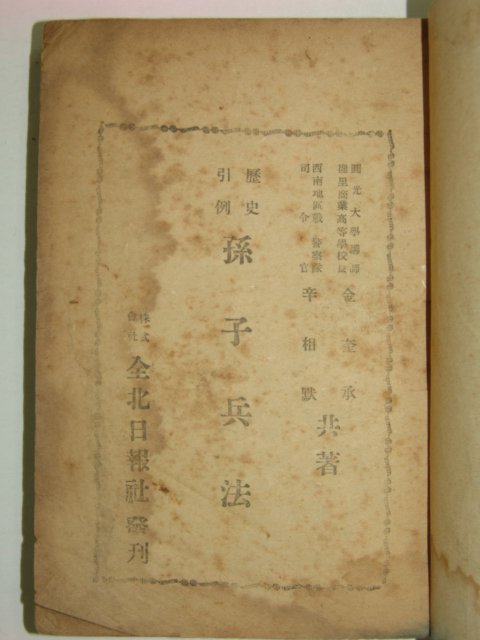 圓光大學講師
裡里商業高等學校長 金奎承
西南地區戰鬪警察隊
司令官 辛相默
共著
歷史
引例
孫子兵法
株式
會社
全北日報社發刊